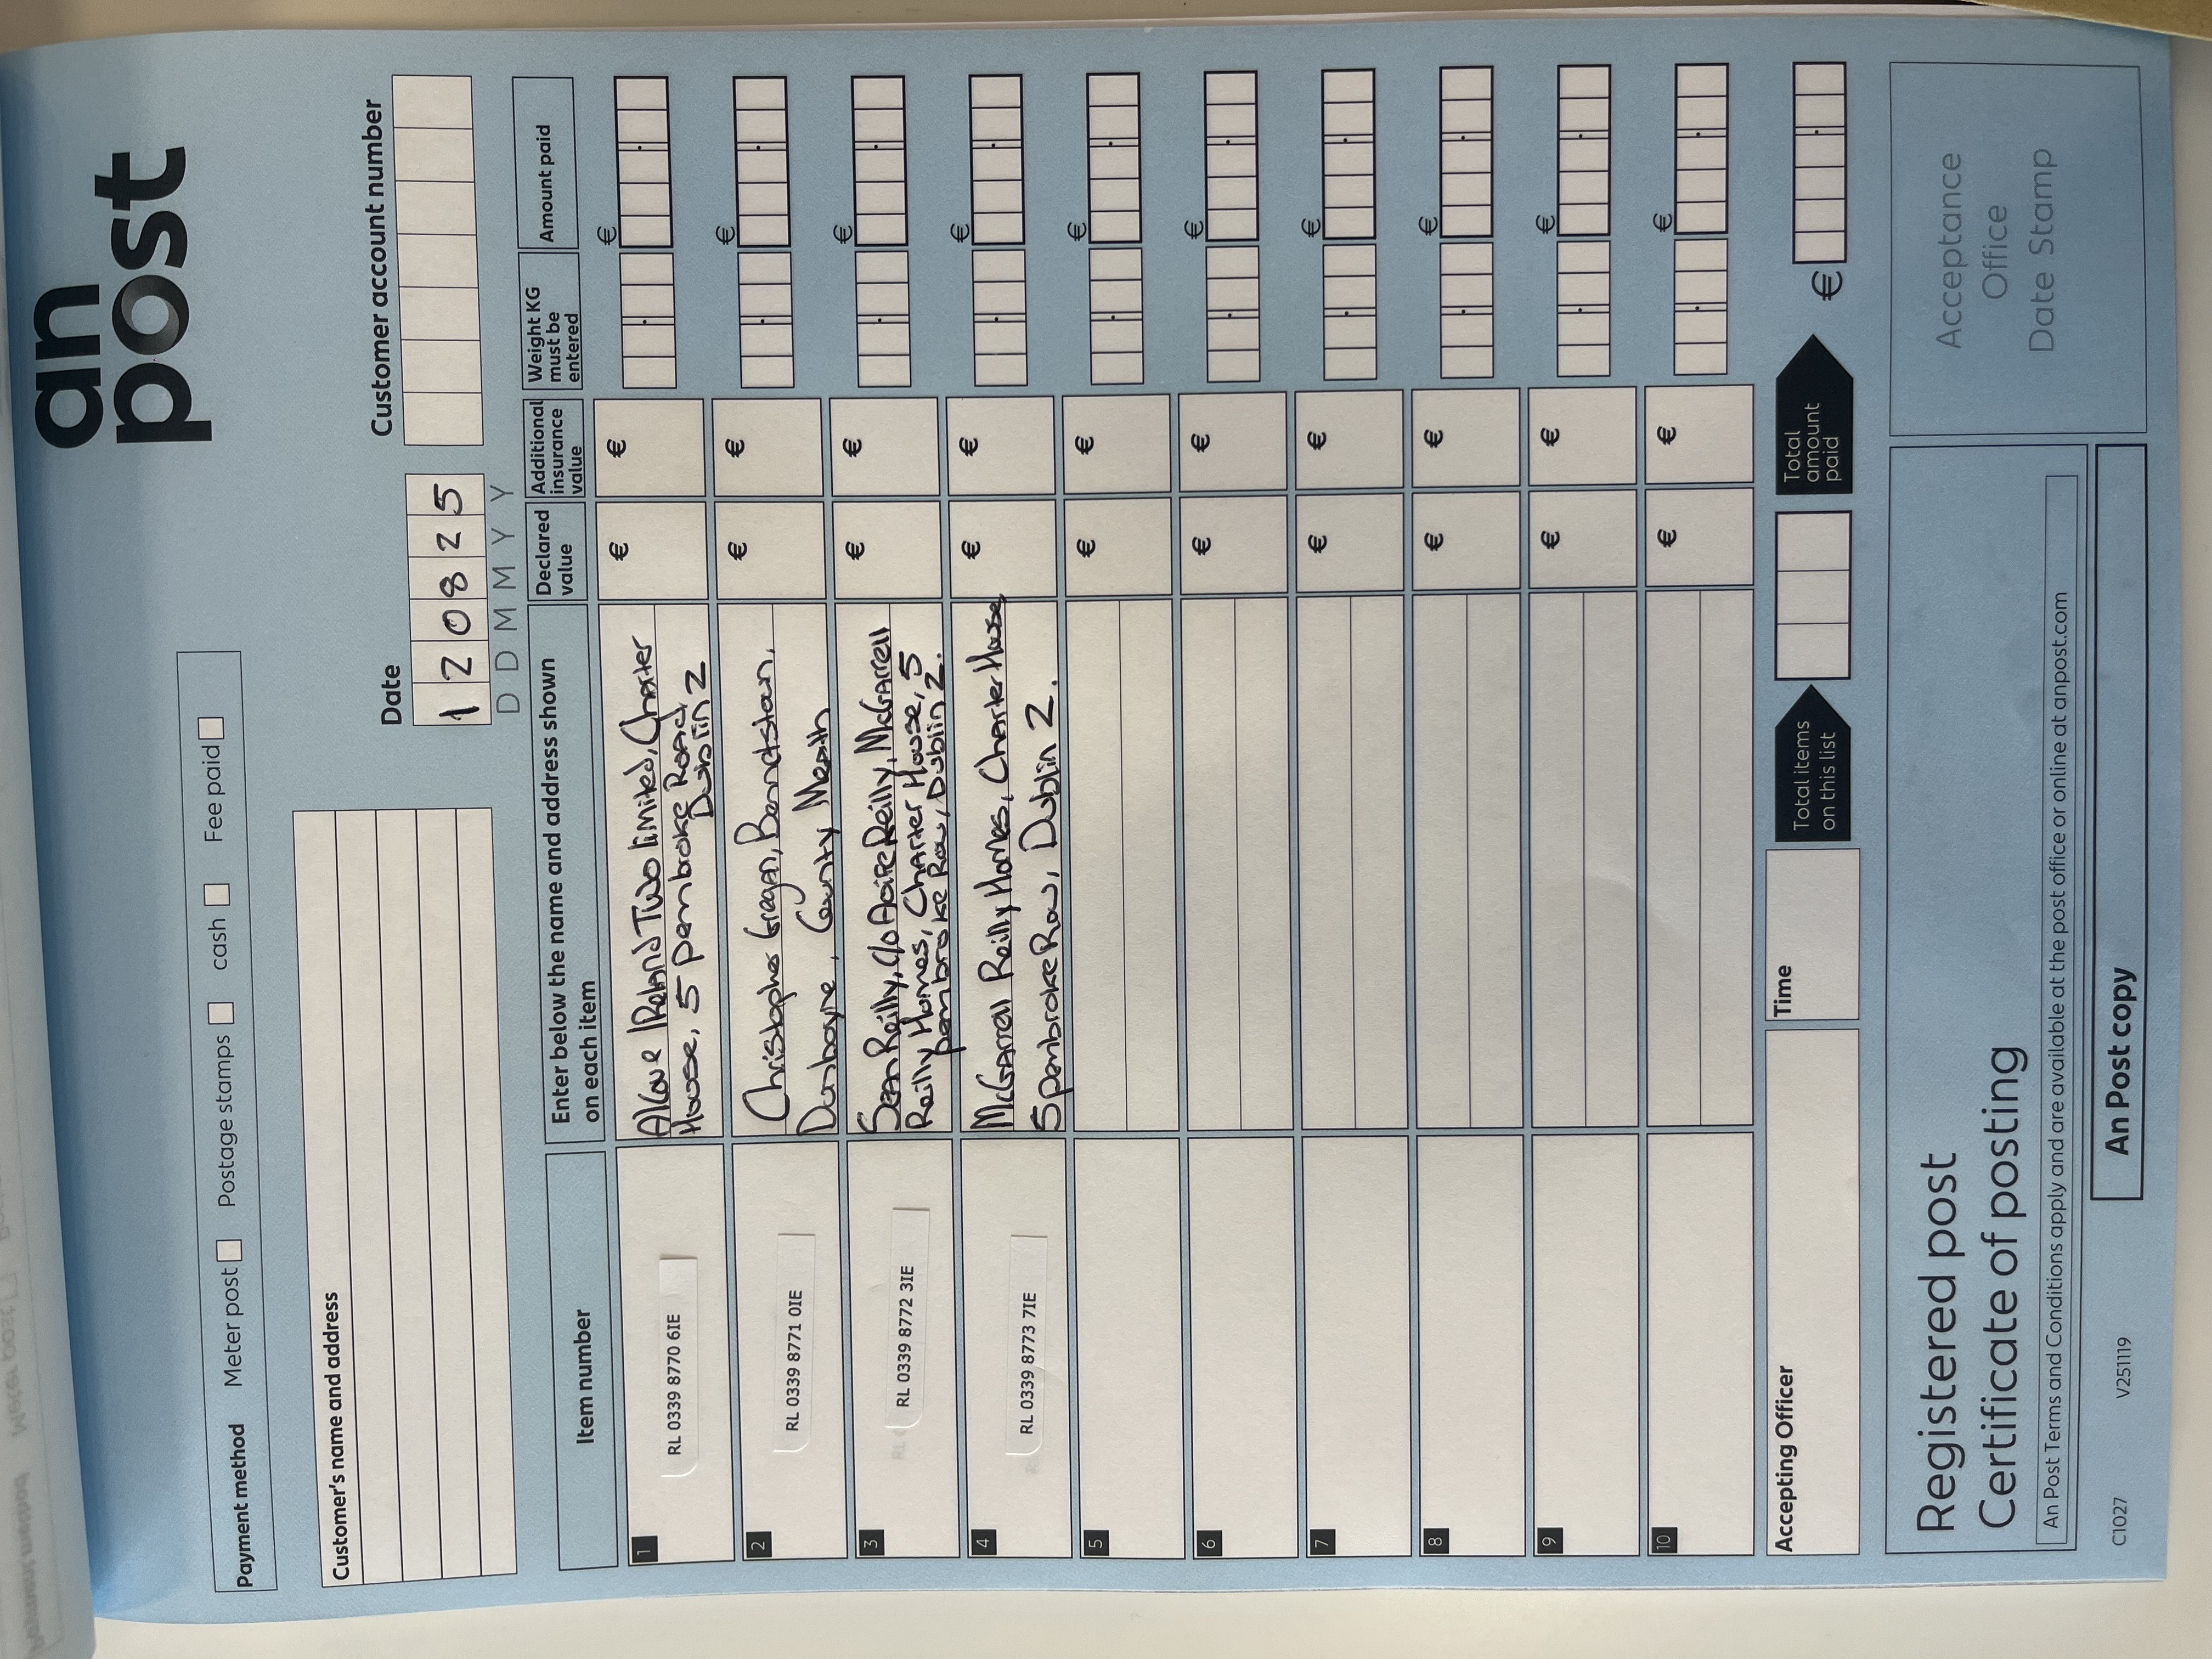 an
post
Payment method Meter post Postage stamps cash Fee paid
Customer's name and address
Date
1 2 0 8 2 5
D D M M Y Y
Customer account number
Item number
Enter below the name and address shown
on each item
Declared
value
Additional
insurance
value
Weight KG
must be
entered
Amount paid
1
RL 0339 8770 6IE
Alcove Ireland Two limited, Charter
House, 5 pembroke Road,
Dublin 2
€ € €
2
RL 0339 8771 0IE
Christopher Gregan, Bennetstown,
Dunboyne, County Meath
€ € €
3
RL 0339 8772 3IE
Sean Reilly, C/o Aoife Reilly, McGarrell
Reilly Homes, Charter House, 5
pembroke Row, Dublin 2.
€ € €
4
RL 0339 8773 7IE
McGarrell Reilly Homes, Charter House,
5 pembroke Row, Dublin 2.
€ € €
5 € € €
6 € € €
7 € € €
8 € € €
9 € € €
10 € € €
Accepting Officer
Time
Total items
on this list
Total
amount
paid
€
Registered post
Certificate of posting
An Post Terms and Conditions apply and are available at the post office or online at anpost.com
Acceptance
Office
Date Stamp
C1027 V251119
An Post copy